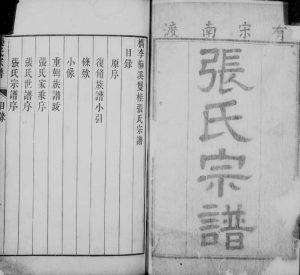 有宋南渡
張氏宗譜
檇李梅溪雙桂張氏宗譜
目錄
原序
復脩族譜小引
條款
小像
重輯族譜跋
張氏家乘序
張氏世譜序
張氏宗譜序
目錄